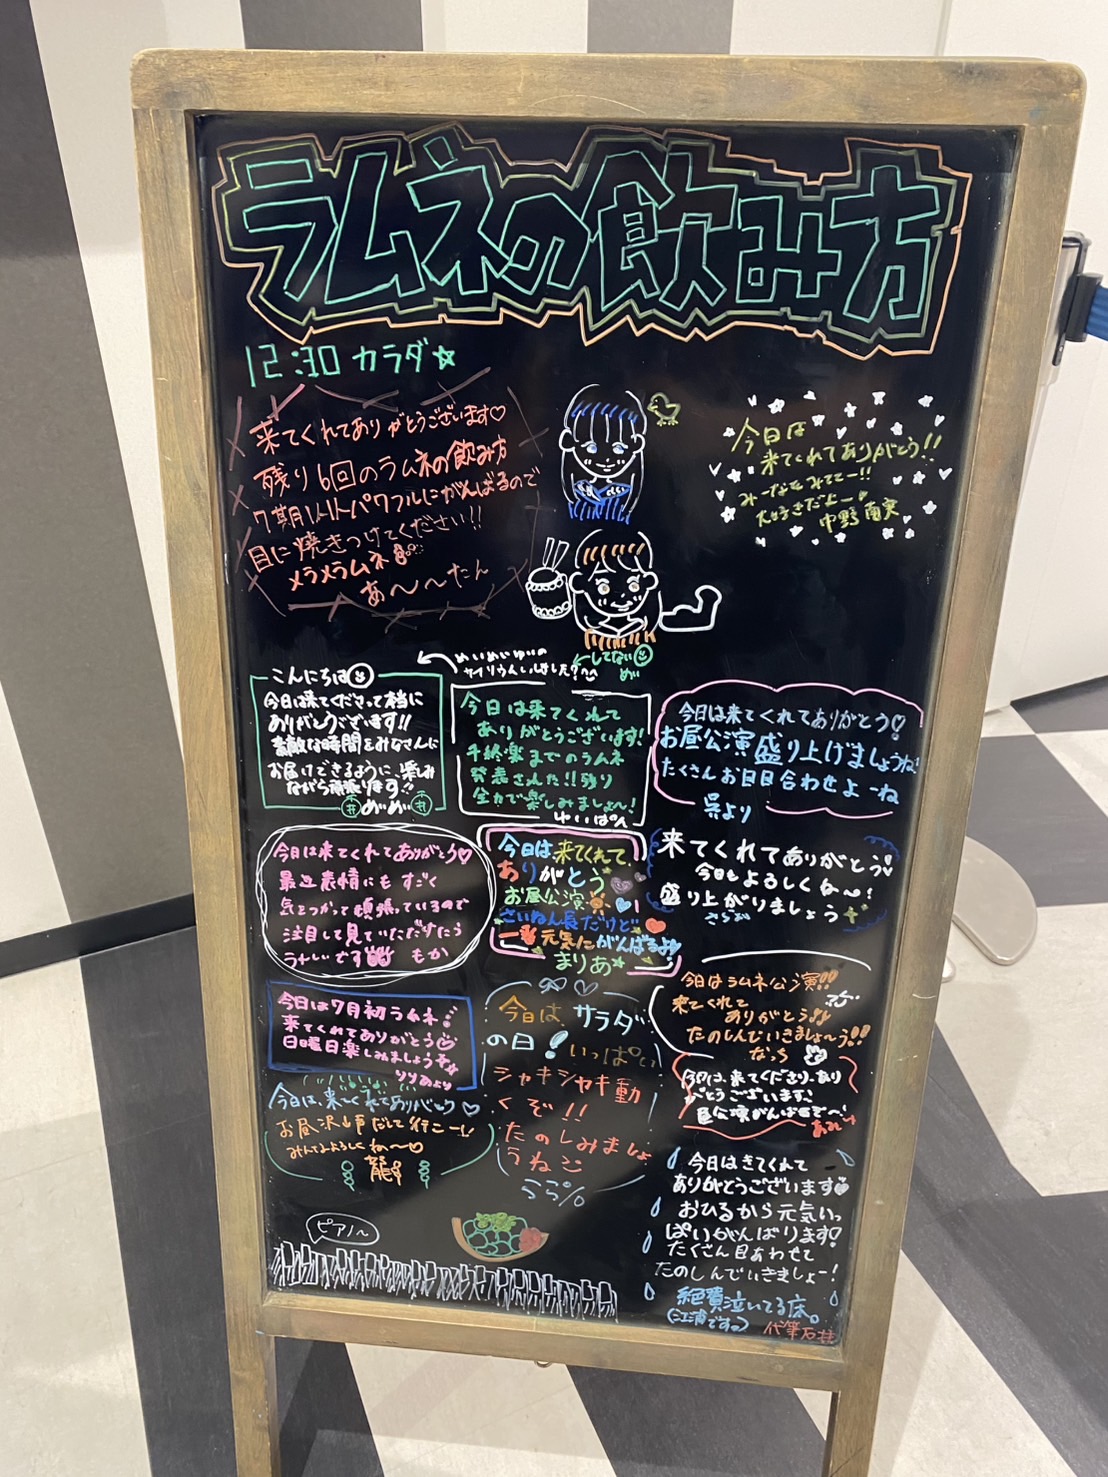 ラムネの飲み方
12:30 カラダ☆
来てくれてありがとうございます♡
残り6回のラムネの飲み方
7期パワフルにがんばるので
目に焼きつけてください!!
メラメラムネ
あ〜〜たん
今日は
来てくれてありがとう!!
みーなもみててー!!
大好きだよー
中野
めいめいゆいの
してない
めい
こんにちは
今日は来てくださって本当に
ありがとうございます!!
素敵な時間をみなさんに
お届けできるように、楽しみ
ながら頑張ります!
めいめい
今日は来てくれて
ありがとうございます!
千秋楽までのラムネ
発表された!!残り
全力で楽しみましょ〜!
ゆいぱん
今日は来てくれてありがとう♡
お昼公演盛り上げましょうね!
たくさんお目目合わせよーね
呉より
今日は来てくれてありがとう♡
最近表情にもすごく
気をつかって頑張っているので
注目して見ていただけたら
うれしいです
もか
今日は来てくれて、
ありがとう
お昼公演
さいねん長だけど
一番元気にがんばるよ
まりあ☆
来てくれてありがとう
今日もよろしくね〜!
盛り上がりましょう
さらお
今日は7月初ラムネ
来てくれてありがとう
日曜日楽しみましょう
りりあより
今日はサラダ
の日!いっぱい
シャキシャキ動
くぞ!!
たのしみましょ
うね
らら
今日はラムネ公演!!
来てくれて
ありがとう!!
たのしんでいきましょ〜う!!
なち
今日は、来てくださり、あり
がとうございます!
今日は、来てくれてありがとう♡
お昼沢山声だして行こー!!
みんなよろしくね〜
龍
今日はきてくれて
ありがとうございます
おひるから元気いっ
ぱいがんばります!
たくさん目あわせて
たのしんでいきましょー!
絶賛泣いてる床。
(江浦ですっ)
代筆石井
ピアノ〜